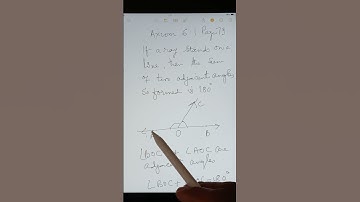 Axiom 6.1 Page 73
If a ray stands on a
line, then the sum
of two adjacent angles
so formed is 180°
C
A O B
∠BOC + ∠AOC are
adjacent angles
∠BOC +